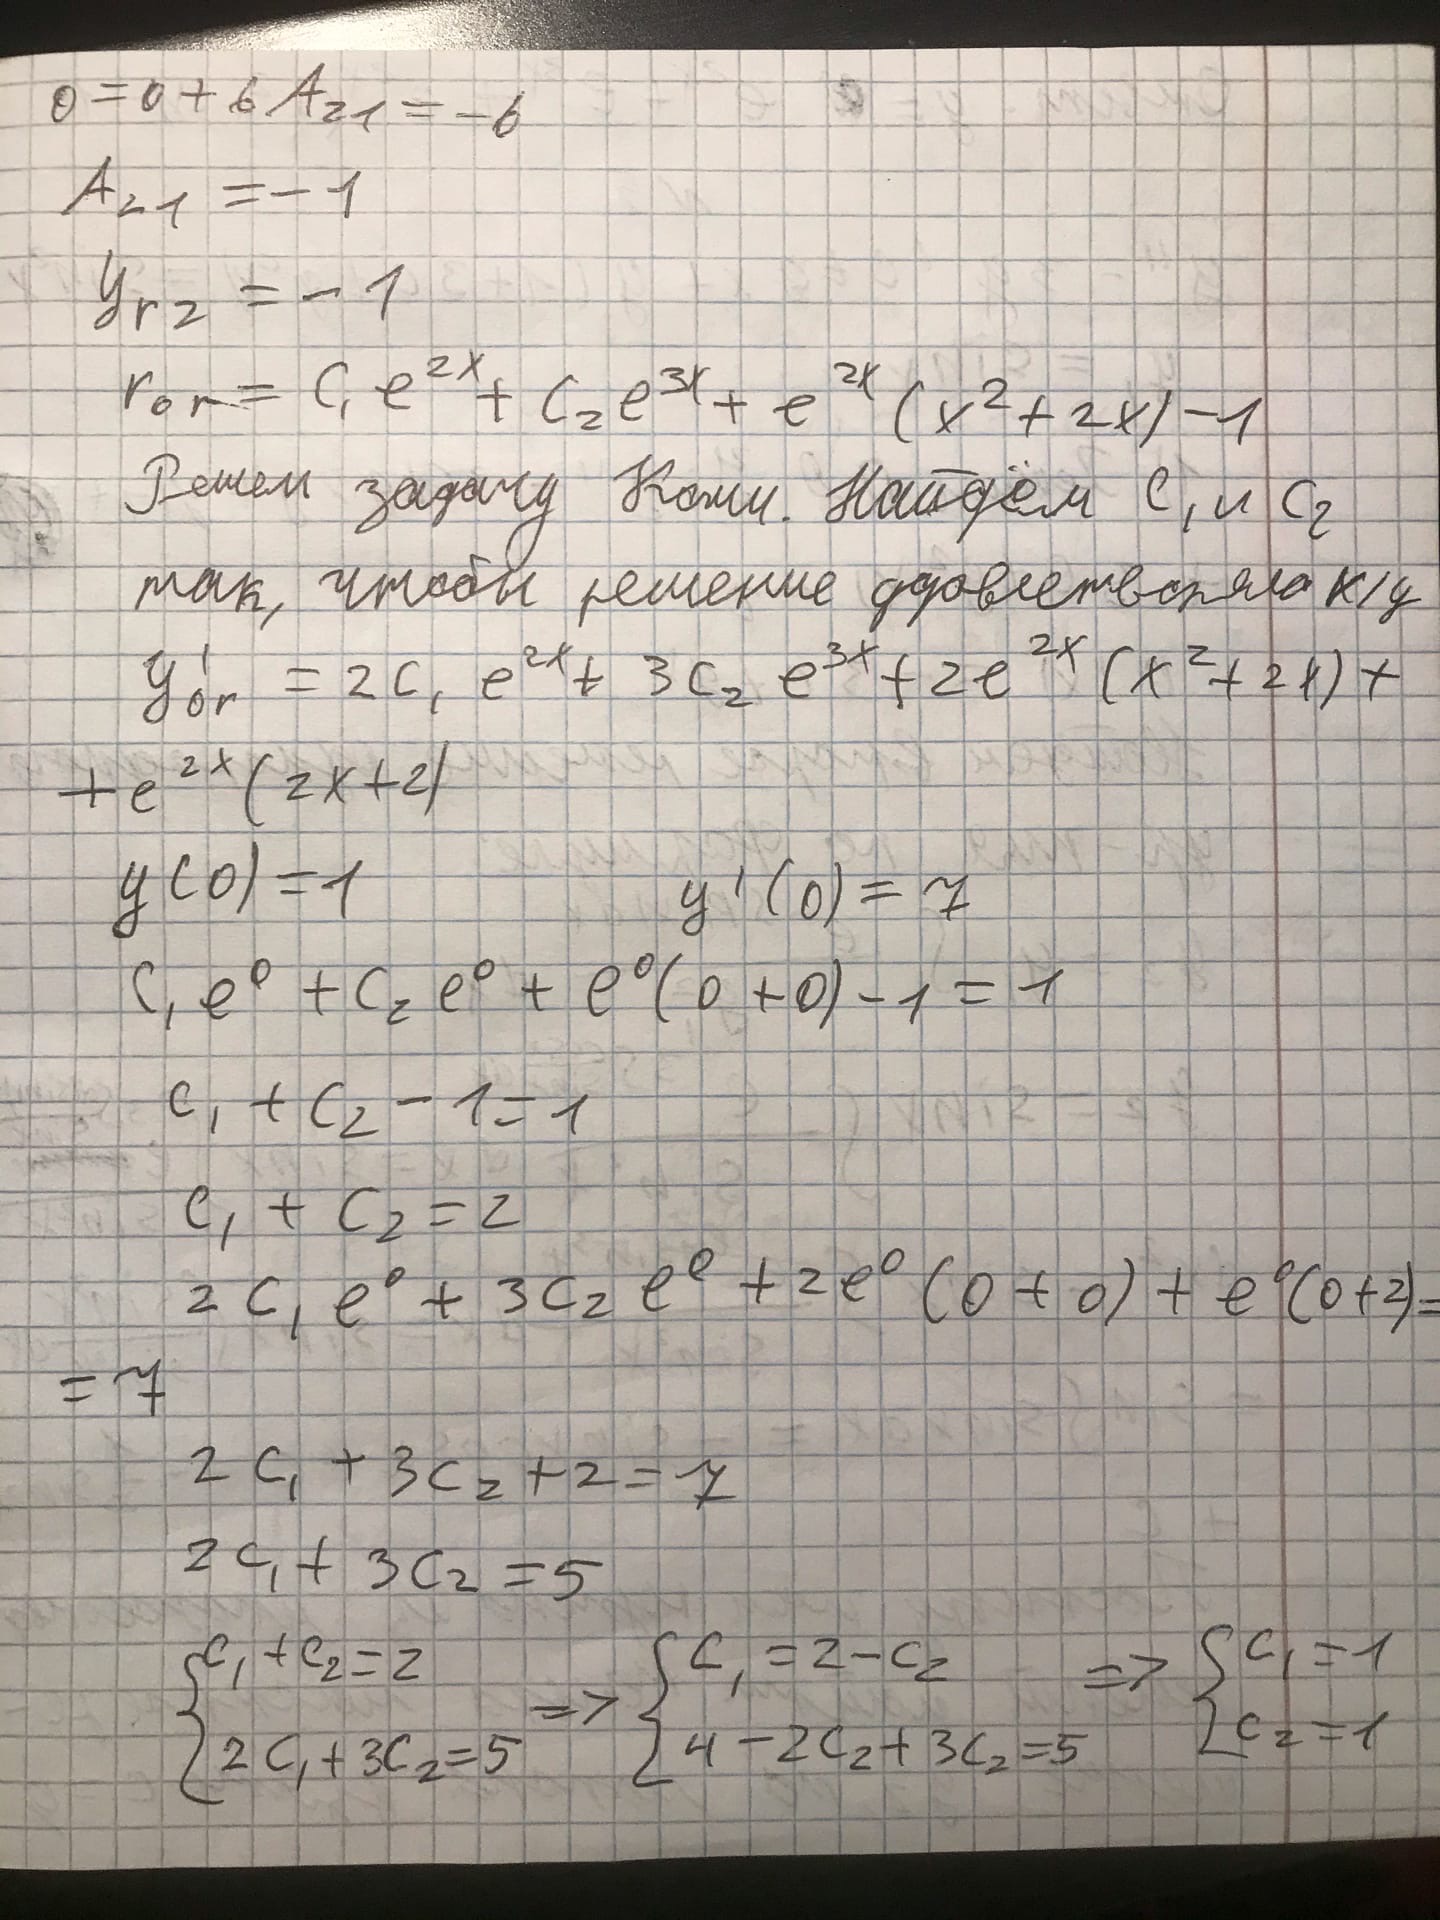 0 = 0 + 6 A₂₁ = -6
A₂₁ = -1
yᵣ₂ = -1
rₒᵣ = C₁e²ˣ + C₂e³ˣ + e²ˣ(x² + 2x) - 1
Решем задачу Коши. Найдём C₁ и C₂
так, чтобы решение удовлетворяло к/у
y'ₒᵣ = 2C₁ e²ˣ + 3C₂ e³ˣ + 2e²ˣ (x² + 2x) +
+ e²ˣ (2x + 2)
y(0) = 1 y'(0) = 7
C₁e⁰ + C₂e⁰ + e⁰(0 + 0) - 1 = 1
C₁ + C₂ - 1 = 1
C₁ + C₂ = 2
2C₁e⁰ + 3C₂e⁰ + 2e⁰(0 + 0) + e⁰(0+2) =
= 7
2C₁ + 3C₂ + 2 = 7
2C₁ + 3C₂ = 5
{ C₁ + C₂ = 2 => { C₁ = 2 - C₂ => { C₁ = 1
2C₁ + 3C₂ = 5 4 - 2C₂ + 3C₂ = 5 C₂ = 1